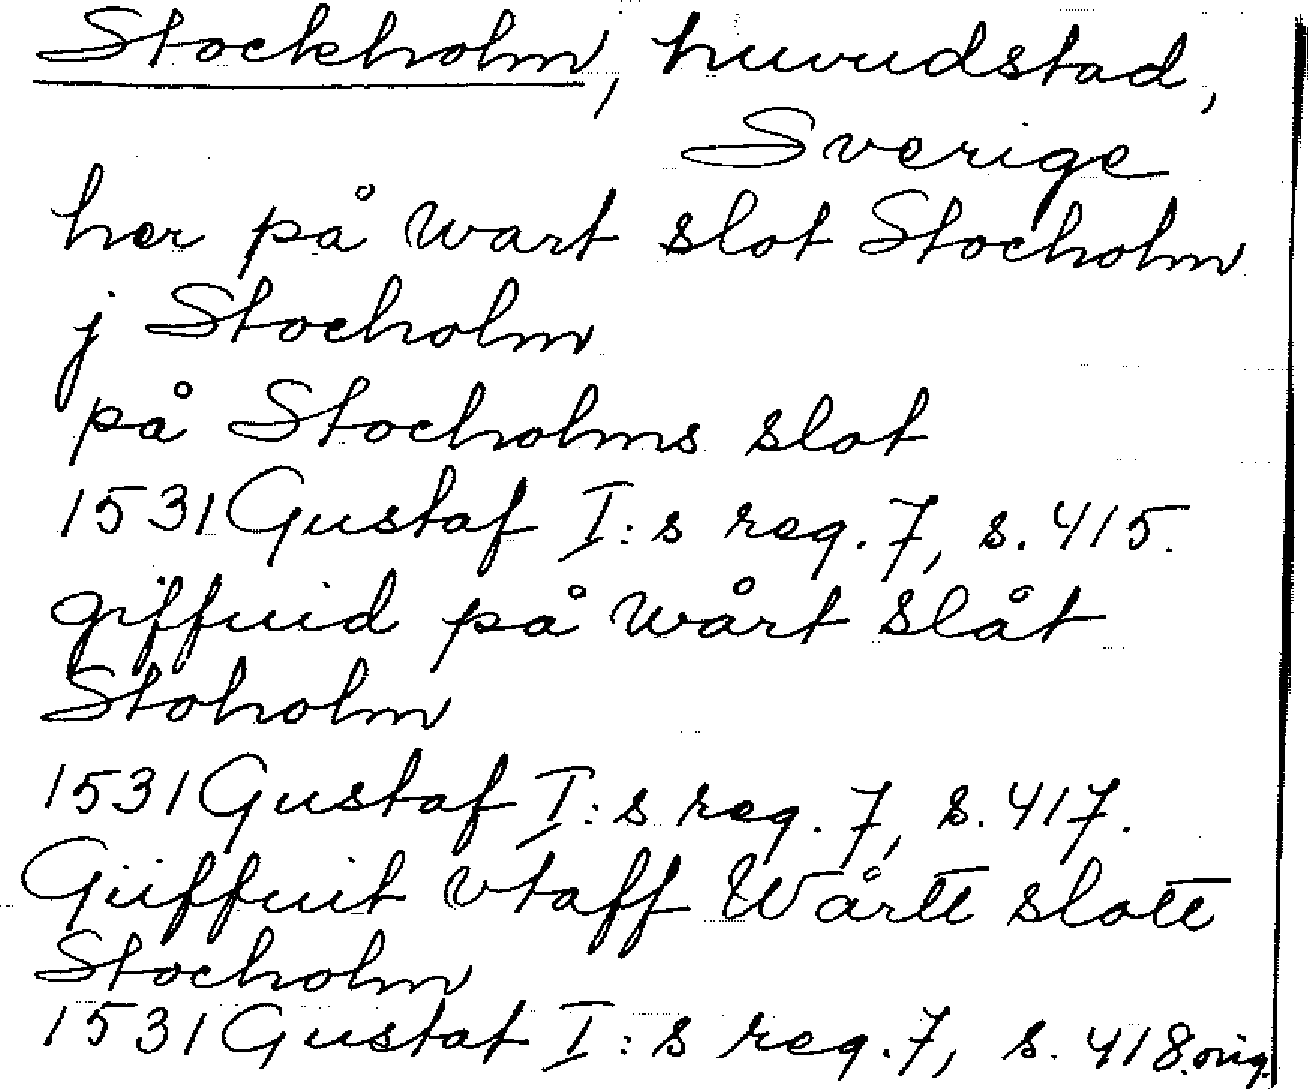 Stockholm, huvudstad,
Sverige
her på wart slot Stocholm
j Stocholm
på Stocholms slot
1531 Gustaf I:s reg. 7, s. 415.
giffuid på wårt slåt
Stoholm
1531 Gustaf I:s reg. 7, s. 417.
Giiffuit vtaff Wårtt slott
Stocholm
1531 Gustaf I:s reg. 7, s. 418. orig.